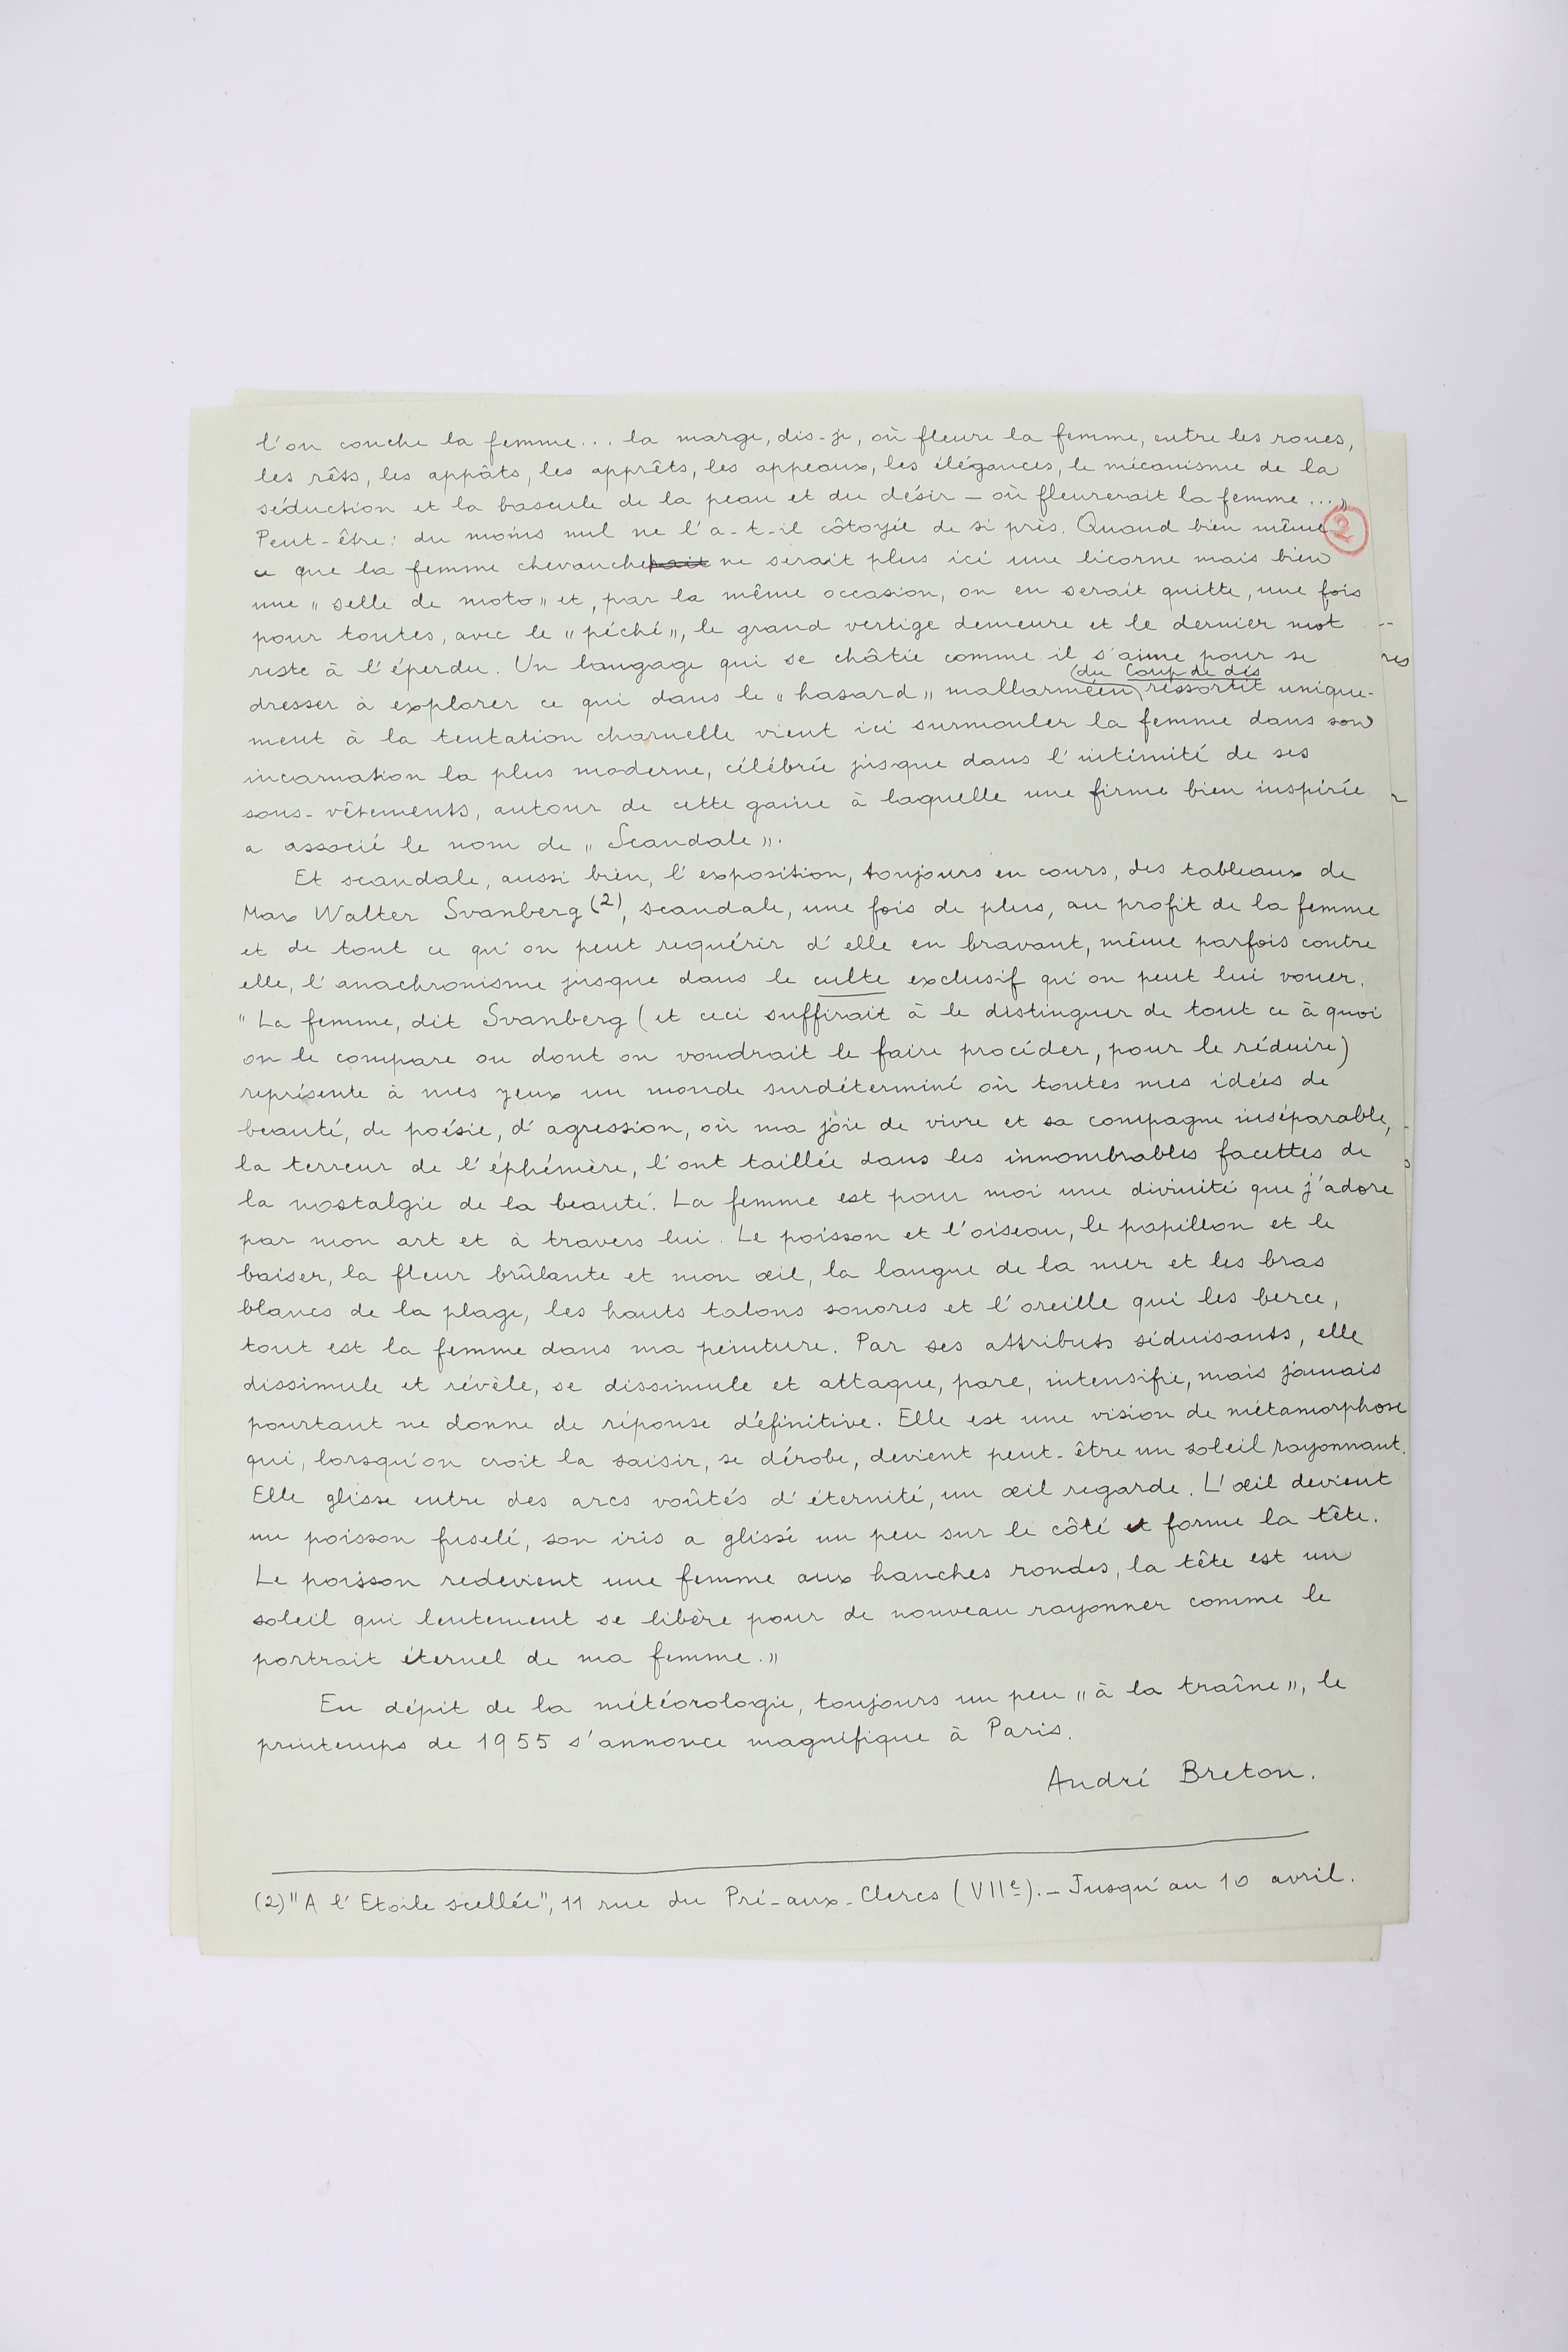 l'on couche la femme... la marge, dis-je, où fleure la femme, entre les roues,
les rêts, les appâts, les apprêts, les appeaux, les élégances, le mécanisme de la
séduction et la bascule de la peau et du désir — où fleurerait la femme... »
Peut-être : du moins nul ne l'a-t-il côtoyée de si près. Quand bien même
2
ce que la femme chevauche ne serait plus ici une licorne mais bien
une « selle de moto » et, par la même occasion, on en serait quitte, une fois
pour toutes, avec le « péché », le grand vertige demeure et le dernier mot
reste à l'éperdu. Un langage qui se châtie comme il s'aime pour se
du Coup de dés
dresser à explorer ce qui dans le « hasard » mallarméen ressortit unique-
ment à la tentation charnelle vient ici surmouler la femme dans son
incarnation la plus moderne, célébrée jusque dans l'intimité de ses
sous-vêtements, autour de cette gaine à laquelle une firme bien inspirée
a associé le nom de « Scandale ».
Et scandale, aussi bien, l'exposition, toujours en cours, des tableaux de
Max Walter Svanberg (2), scandale, une fois de plus, au profit de la femme
et de tout ce qu'on peut requérir d'elle en bravant, même parfois contre
elle, l'anachronisme jusque dans le culte exclusif qu'on peut lui vouer.
" La femme, dit Svanberg (et ceci suffirait à le distinguer de tout ce à quoi
on le compare ou dont on voudrait le faire procéder, pour le réduire)
représente à mes yeux un monde surdéterminé où toutes mes idées de
beauté, de poésie, d'agression, où ma joie de vivre et sa compagne inséparable,
la terreur de l'éphémère, l'ont taillée dans les innombrables facettes de
la nostalgie de la beauté. La femme est pour moi une divinité que j'adore
par mon art et à travers lui. Le poisson et l'oiseau, le papillon et le
baiser, la fleur brûlante et mon œil, la langue de la mer et les bras
blancs de la plage, les hauts talons sonores et l'oreille qui les berce,
tout est la femme dans ma peinture. Par ses attributs séduisants, elle
dissimule et révèle, se dissimule et attaque, pare, intensifie, mais jamais
pourtant ne donne de réponse définitive. Elle est une vision de métamorphose
qui, lorsqu'on croit la saisir, se dérobe, devient peut-être un soleil rayonnant.
Elle glisse entre des arcs voûtés d'éternité, un œil regarde. L'œil devient
un poisson fuselé, son iris a glissé un peu sur le côté et forme la tête.
Le poisson redevient une femme aux hanches rondes, la tête est un
soleil qui lentement se libère pour de nouveau rayonner comme le
portrait éternel de ma femme. »
En dépit de la météorologie, toujours un peu « à la traîne », le
printemps de 1955 s'annonce magnifique à Paris.
André Breton.
(2) "A l'Etoile scellée", 11 rue du Pré-aux-Clercs (VIIe). — Jusqu'au 10 avril.